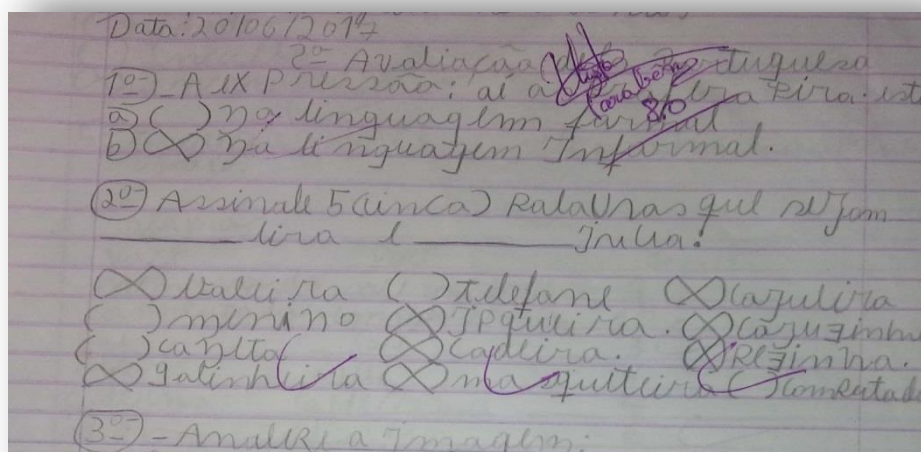 Data: 20/06/2017
2º Avaliação de Portuguesa
1º - A EXPressão: aí a
a) ( ) na linguagem formal
b) (X) na linguagem Informal.
Parabéns
8,0
2º Assinale 5 (cinco) Palavras que sejam
______ eira e ______ inha.
(X) ( ) telefone (X) cajuleira
( ) menino (X) (X) cajuzinho
( ) caneta (X) cadeira. (X) Rezinha.
(X) galinheira (X) mosquiteira ( ) computad
3º - Analise a imagem: